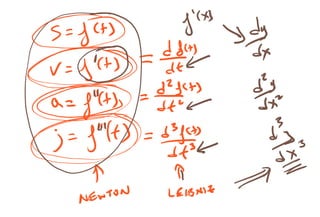 s = f(t)
v = f'(t) = d f(t) / dt
a = f''(t) = d² f(t) / dt²
j = f'''(t) = d³ f(t) / dt³
NEWTON LEIBNIZ
f'(x)
dy / dx
d²y / dx²
d³y / dx³